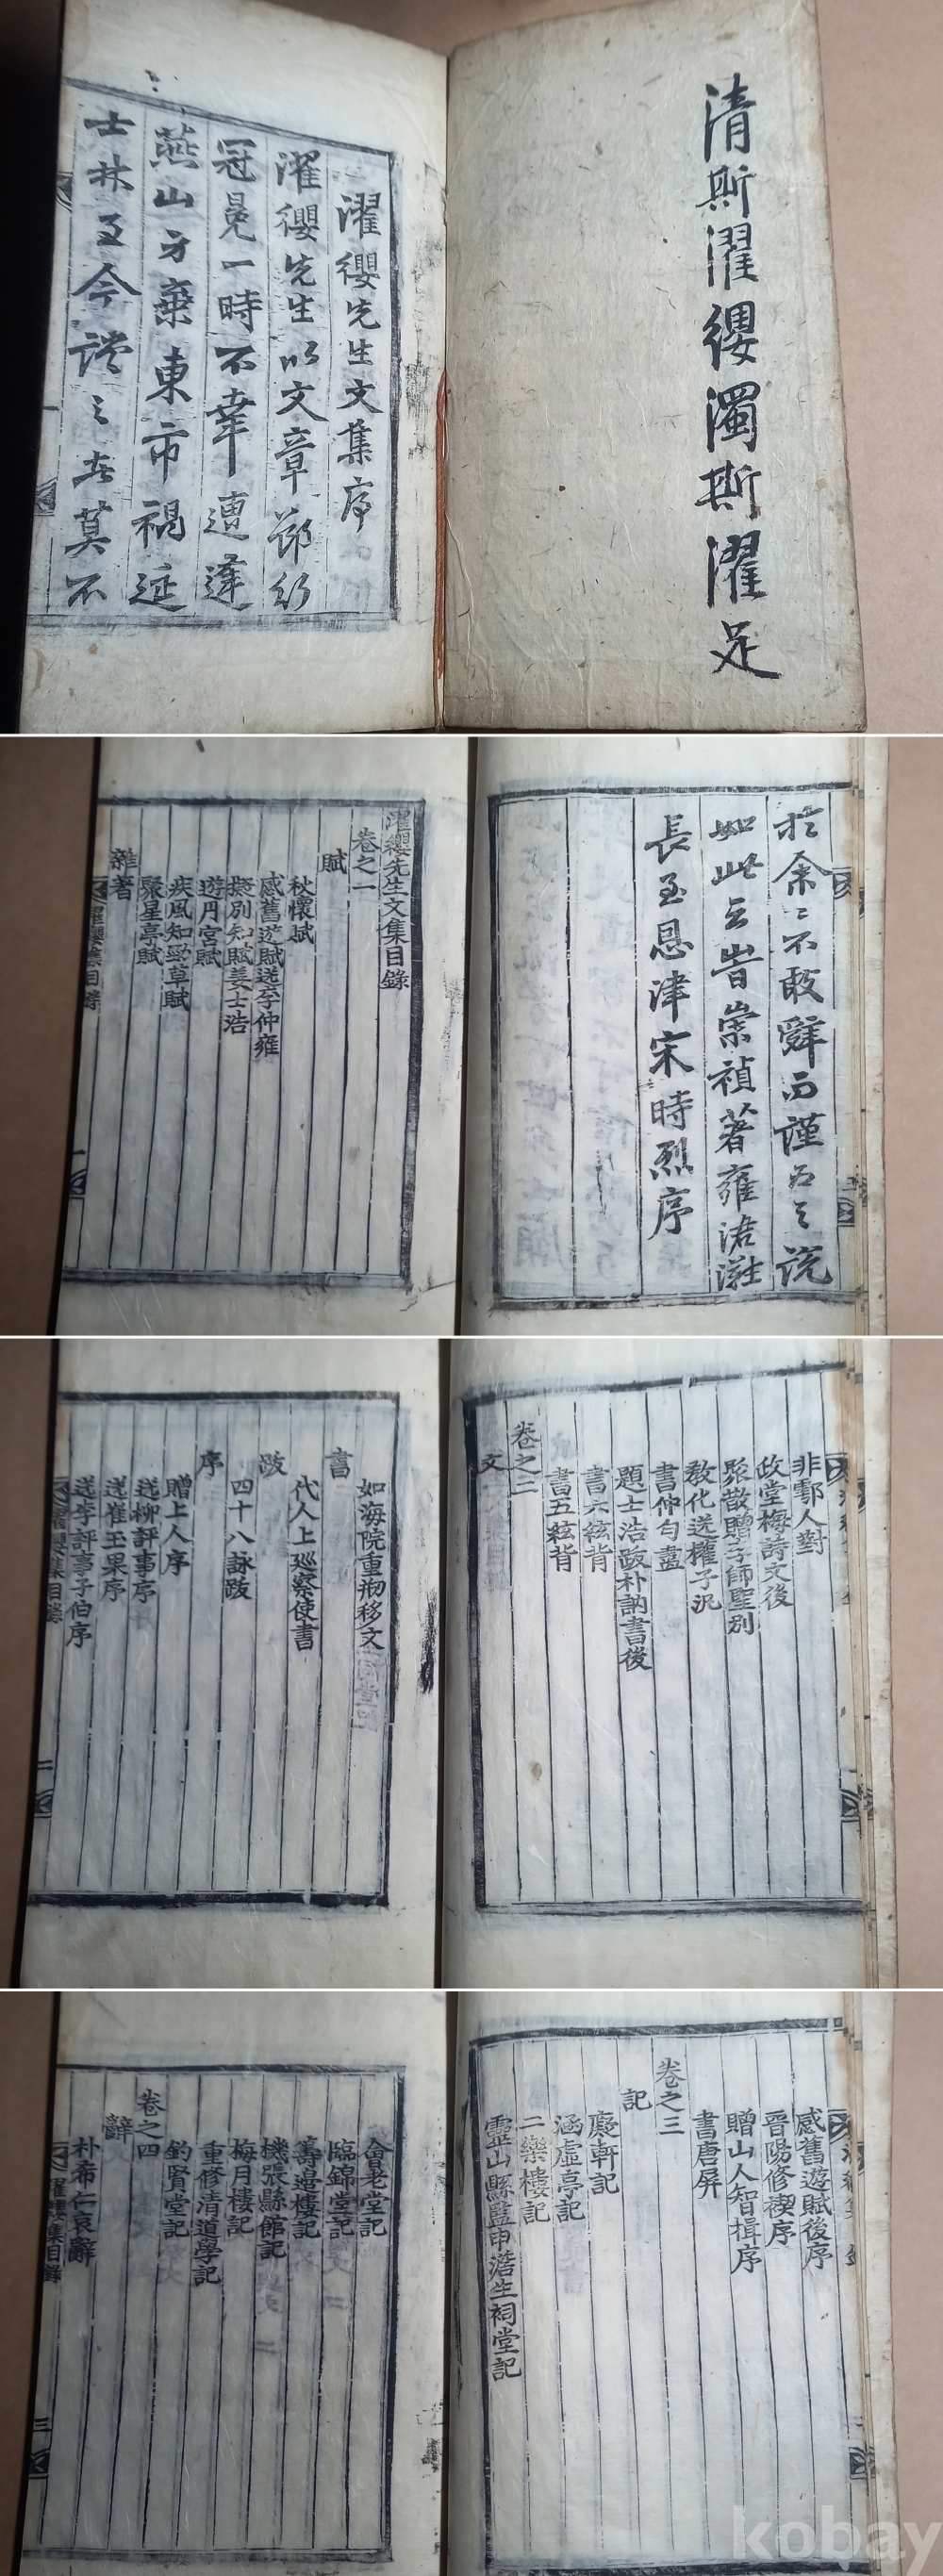 清斯濯纓濁斯濯足
濯纓先生文集序
濯纓先生以文章節行
冠冕一時不幸遭逢
燕山方棄東市禍延
士林至今談之者莫不
於余余不敢辭而謹爲之說
如此云岢崇禎著雍涒灘
長至恩津宋時烈序
濯纓先生文集目錄
卷之一
賦
秋懷賦
感舊遊賦送李仲雍
擬別知賦姜士浩
遊月宮賦
疾風知勁草賦
聚星亭賦
雜著
濯纓集目錄
一
非鄠人對
政堂梅詩文後
聚散贈李師聖別
敎化送權子汎
書仲匀盡
題士浩跋朴訥書後
書六絃背
書五絃背
卷之二
文
如海院重刱移文
書
代人上廵察使書
跋
四十八詠跋
序
贈上人序
送柳評事序
送崔玉果序
送李評事子伯序
濯纓集目錄
二
感舊遊賦後序
晉陽修禊序
贈山人智揖序
書唐屏
卷之三
記
癡軒記
涵虛亭記
二樂樓記
靈山縣監申澹生祠堂記
會老堂記
臨錦堂記
籌邊樓記
機張縣館記
梅月樓記
重修清道學記
釣賢堂記
卷之四
辭
朴希仁哀辭
濯纓集目錄
三
kobay